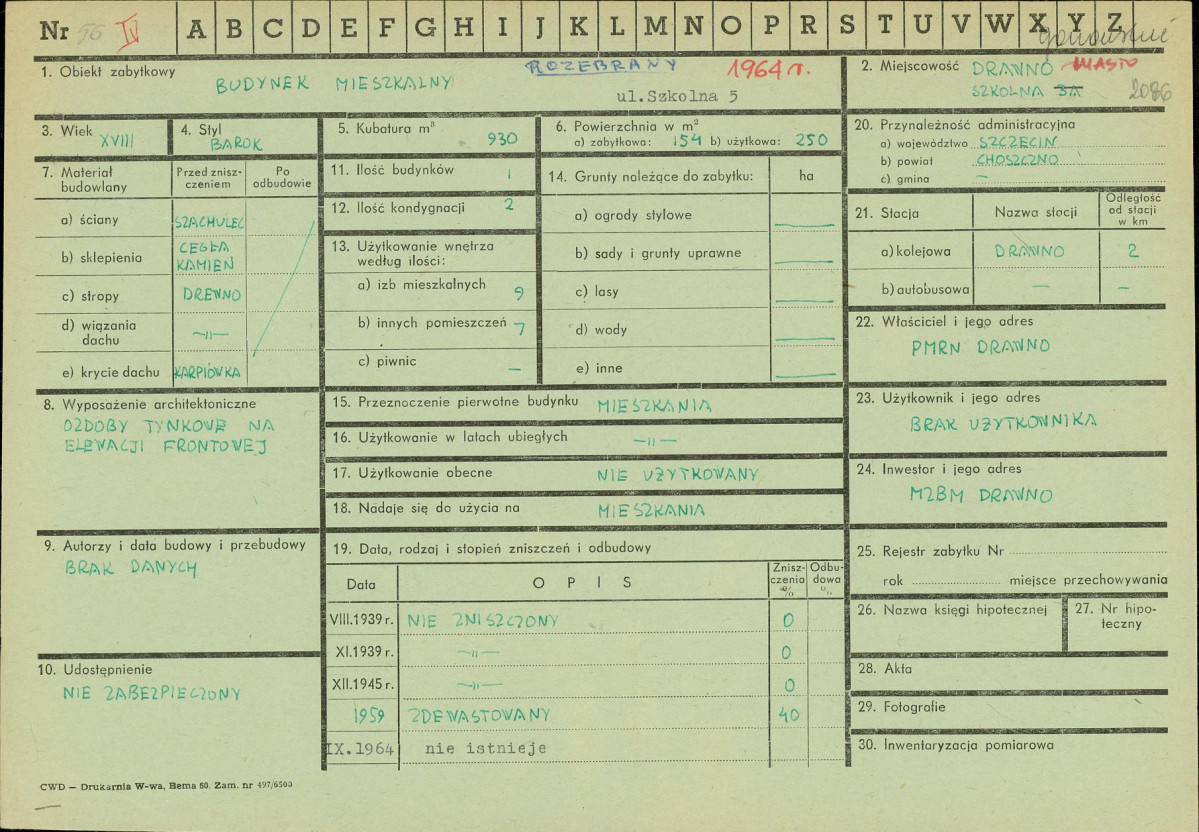 Nr 56 IV A B C D E F G H I J K L M N O P R S T U V W X Y Z
1. Obiekt zabytkowy
BUDYNEK MIESZKALNY
ROZEBRANY 1964 r.
ul.Szkolna 5
2. Miejscowość DRAWNO MIASTO
SZKOLNA 3A 2086
3. Wiek
XVIII
4. Styl
BAROK
5. Kubatura m³
930
6. Powierzchnia w m²
a) zabytkowa: 154 b) użytkowa: 250
7. Materiał budowlany
Przed znisz-
czeniem
Po
odbudowie
a) ściany SZACHULEC
b) sklepienia CEGŁA
KAMIEŃ
c) stropy DREWNO
d) wiązania
dachu —„—
e) krycie dachu KARPIÓWKA
8. Wyposażenie architektoniczne
OZDOBY TYNKOWE NA
ELEWACJI FRONTOWEJ
9. Autorzy i data budowy i przebudowy
BRAK DANYCH
10. Udostępnienie
NIE ZABEZPIECZONY
11. Ilość budynków 1
12. Ilość kondygnacji 2
13. Użytkowanie wnętrza
według ilości:
a) izb mieszkalnych 9
b) innych pomieszczeń 7
c) piwnic —
14. Grunty należące do zabytku: ha
a) ogrody stylowe —
b) sady i grunty uprawne —
c) lasy —
d) wody —
e) inne —
15. Przeznoczenie pierwotne budynku MIESZKANIA
16. Użytkowanie w latach ubiegłych —„—
17. Użytkowanie obecne NIE UŻYTKOWANY
18. Nadaje się do użycia na MIESZKANIA
19. Data, rodzaj i stopień zniszczeń i odbudowy
Data OPIS
Znisz-
czenia
%
Odbu-
dowa
%
VIII.1939 r. NIE ZNISZCZONY 0
XI.1939 r. —„— 0
XII.1945 r. —„— 0
1959 ZDEWASTOWANY 40
IX.1964 nie istnieje
20. Przynależność administracyjna
a) województwo SZCZECIN
b) powiat CHOSZCZNO
c) gmina —
21. Stacja Nazwa stacji
Odległość
od stacji
w km
a) kolejowa DRAWNO 2
b) autobusowa — —
22. Właściciel i jego adres
PMRN DRAWNO
23. Użytkownik i jego adres
BRAK UŻYTKOWNIKA
24. Inwestor i jego adres
MZBM DRAWNO
25. Rejestr zabytku Nr
rok miejsce przechowywania
26. Nazwa księgi hipotecznej
27. Nr hipo-
teczny
28. Akta
29. Fotografie
30. Inwentaryzacja pomiarowa
CWD — Drukarnia W-wa, Bema 60. Zam. nr 497/6500